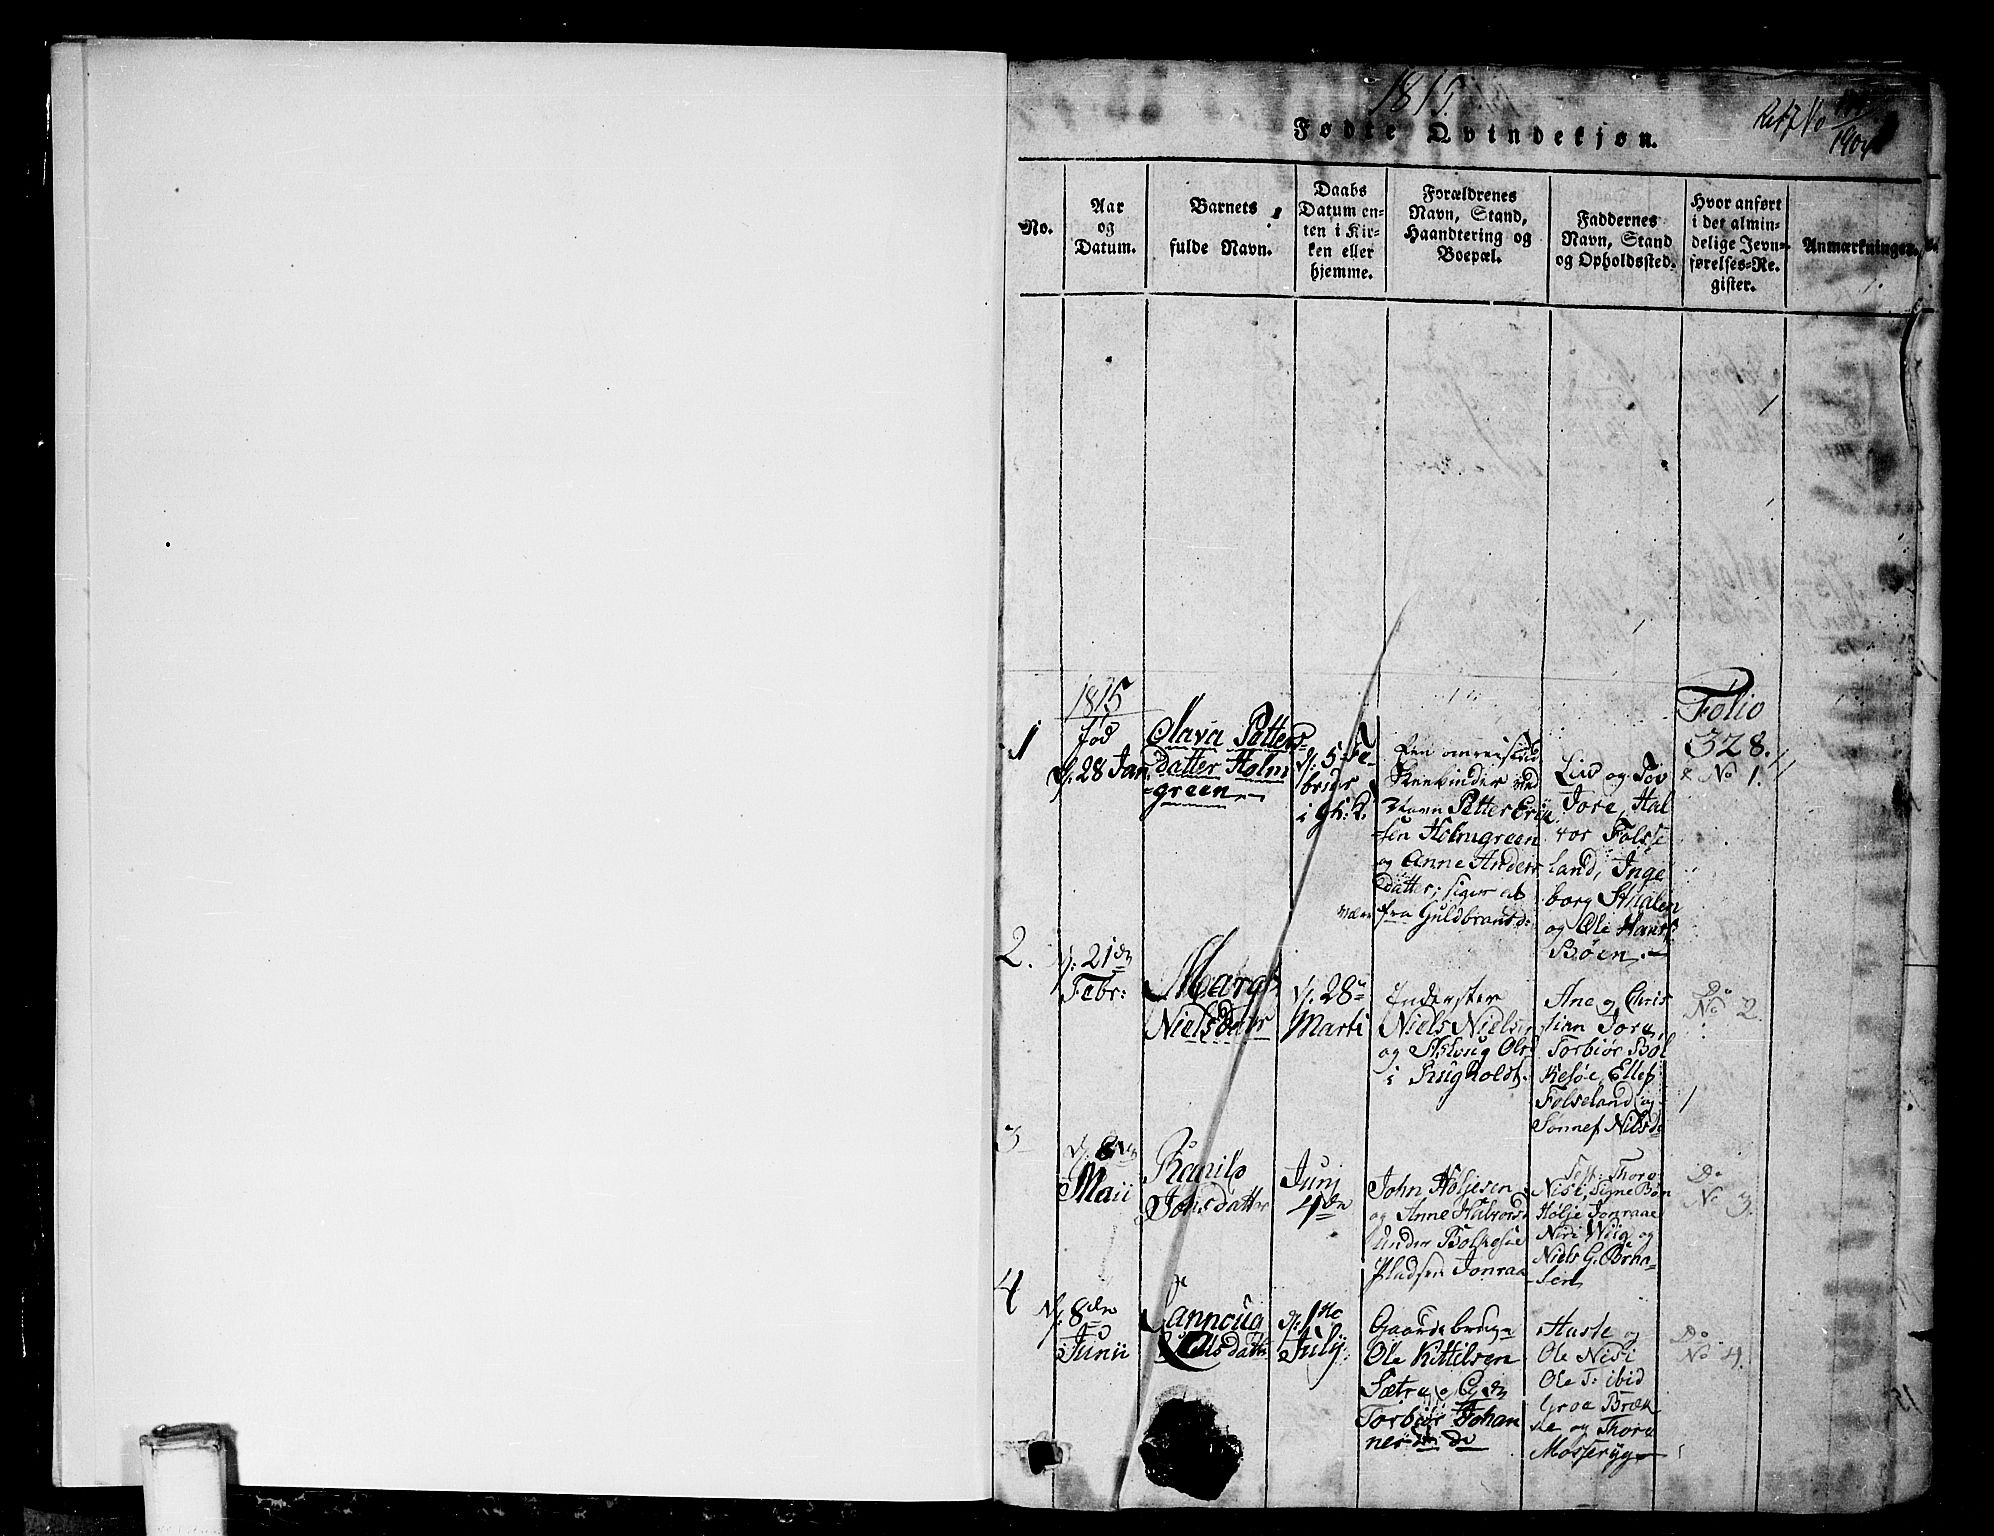 1815.
Fødte Qvindekjøn.
1904
No.
Aar
og
Datum.
Barnets
fulde Navn.
Daabs
Datum en-
ten i Kir-
ken eller
hjemme.
Forældrenes
Navn, Stand,
Haandtering og
Boepæl.
Faddernes
Navn, Stand
og Opholdssted.
Hvor anført
i det almin-
delige Jevn-
førelses-Re-
gister.
Anmærkninger.
1
1815
fød
d. 28 Jan
Olava Petters
datter Holm
green
d. 5 Fe-
bruar
i
Navn Petter Erik
sen Holmgreen
og Anne Anders
datter, siger at
være fra Guldbrandsd:
Liv og Tov
Jore, Hal
vor Folsse
land, Inge
borg Stualen
og Ole Hans:
Bøen.
Folio
328.
No 1.
2.
d. 21de
Febr:
Marg
Nielsdatr
d. 28
Marti
Inderster
Niels Nielsen
og Aslaug Olsd
i
Ane og Chris
tian Jore,
Torbiør Bol
kesøe, Ellef
Folseland og
Sønnef Nilsd
Do
No 2.
3
Maii
Ranild
Johsdatter
Junj
4de
John Holjesen
og Anne Halvorsd
under Bolkesøe
Pladsen Jonraa
Test: Thoro
Nisi, Signe Bøn
Holje Jonraae
Niri Weig og
Niels G. Braa-
sen
Do
No 3.
4
d. 8de
Junii
Lannoug
Olsdatter
d. 1ste
July.
Gaardebruger
Ole Kittilsen
Sætre og
Torbiør Johan
nesd
Aaste og
Ole Nisi
Ole T: ibid
Groe Bræk
ke og Thore
Mosserug
Do
No 4.